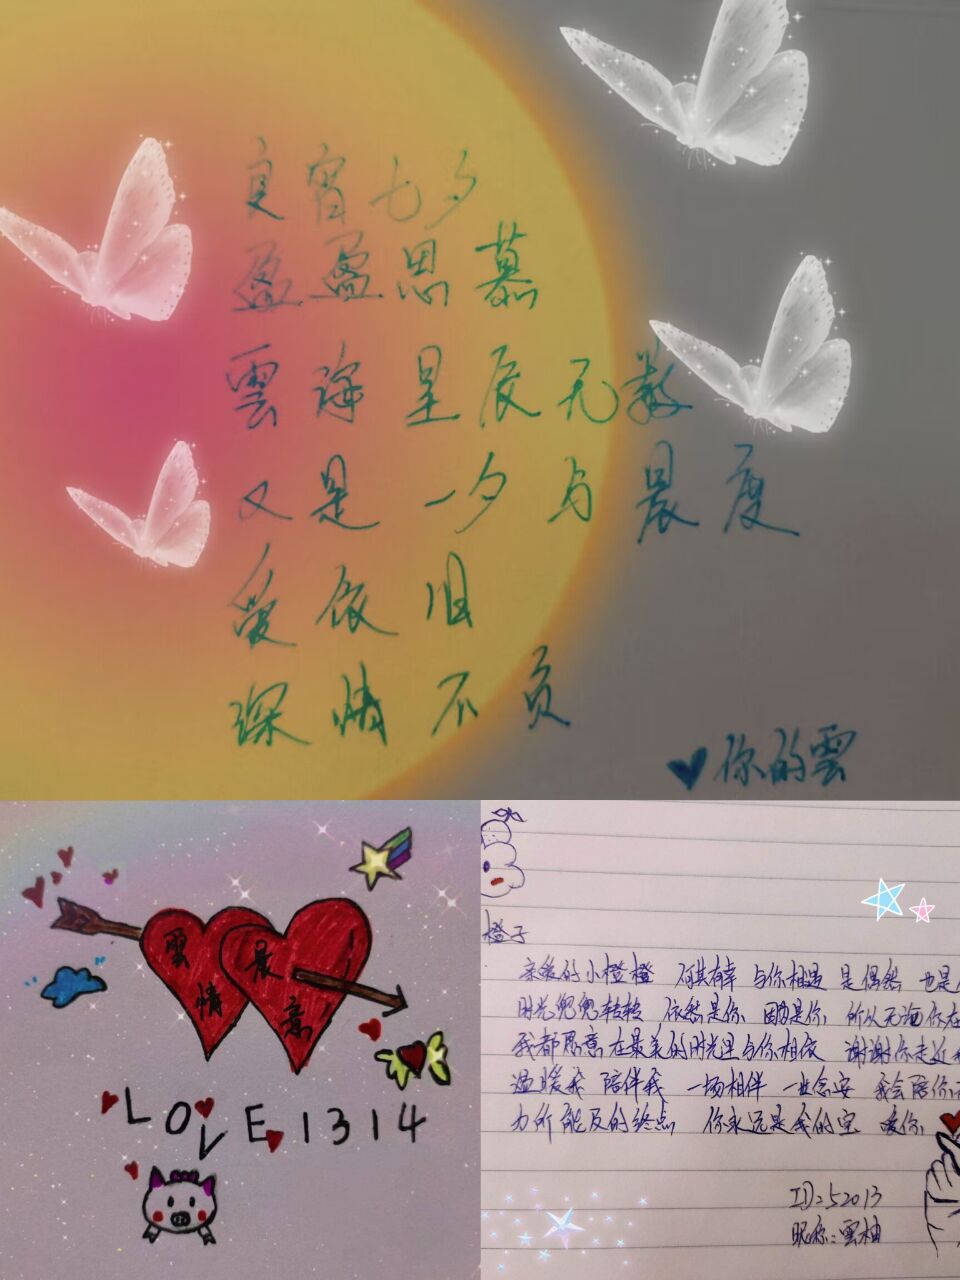 良宵七夕
盈盈思慕
雲海星辰无数
又是一夕与晨度
爱依旧
深情不负
你的雲
雲情
晨意
LOVE1314
橙子
亲爱的小橙橙 何其有幸 与你相遇 是偶然 也是
时光兜兜转转 依然是你 因为是你 所以无论你在
我都愿意在最美的时光里与你相依 谢谢你走近我
温暖我 陪伴我 一场相伴 一世念安 我会陪你
力所能及的终点 你永远是我的宝 爱你
ID:52013
昵称:雲柚